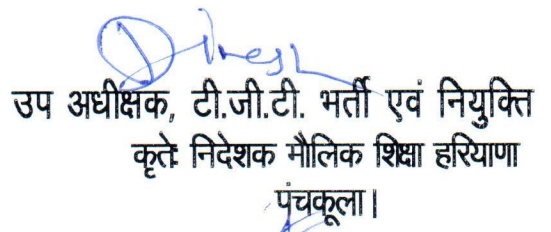 उप अधीक्षक, टी.जी.टी. भर्ती एवं नियुक्ति
कृतेः निदेशक मौलिक शिक्षा हरियाणा
पंचकूला।